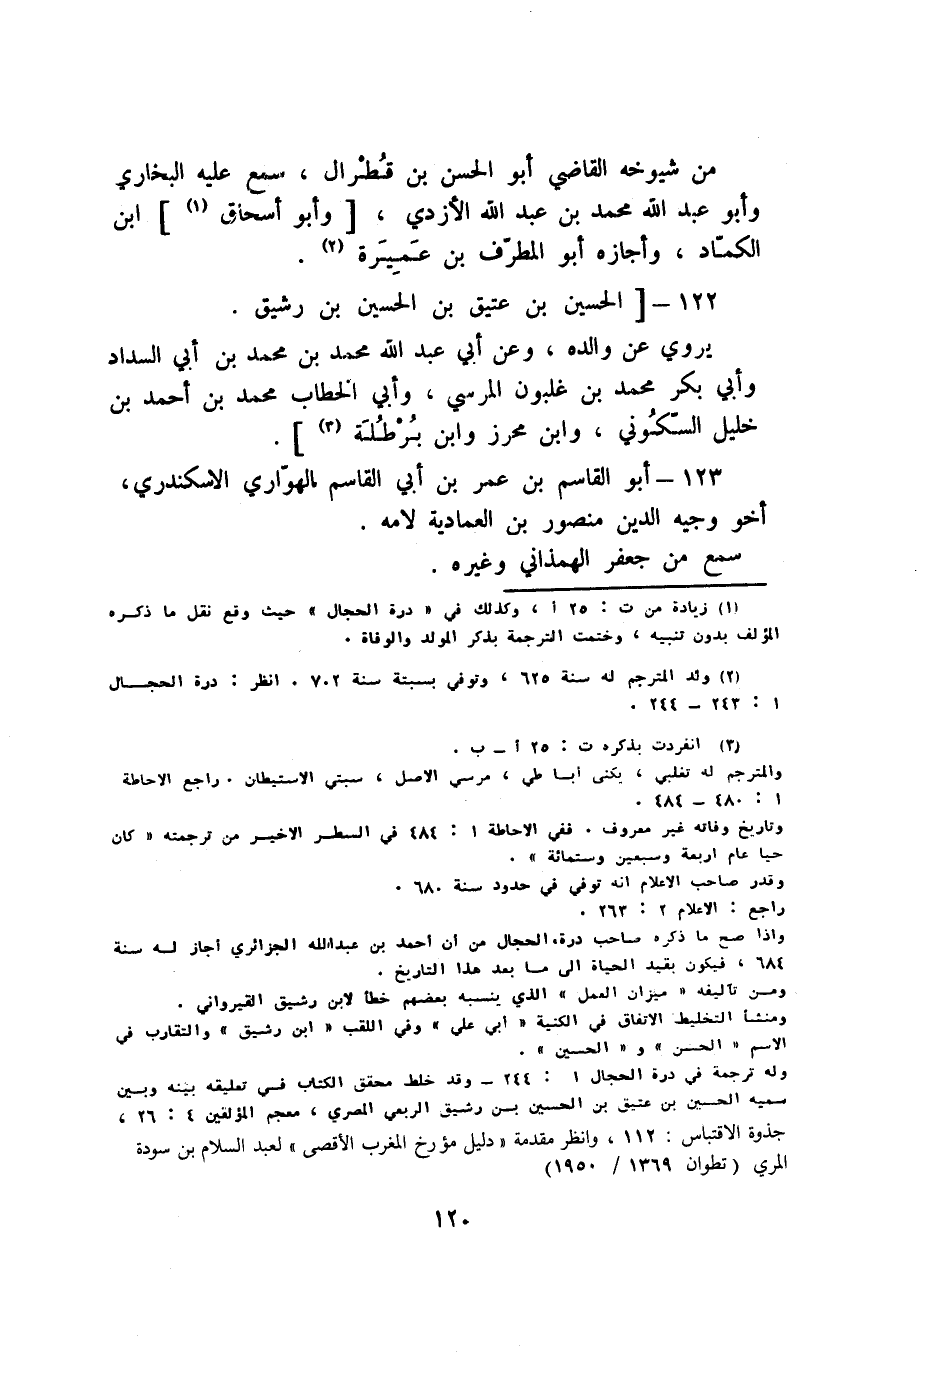 من شيوخه القاضي أبو الحسن بن قُطْرال ، سمع عليه البخاري
وأبو عبد الله محمد بن عبد الله الأزدي ، [ وأبو أسحاق (١) ] ابن
الكمّاد ، وأجازه أبو المطرّف بن عَمِيرَة (٢) .
١٢٢ – [ الحسين بن عتيق بن الحسين بن رشيق .
يروي عن والده ، وعن أبي عبد الله محمد بن محمد بن أبي السداد
وأبي بكر محمد بن غلبون المرسي ، وأبي الخطاب محمد بن أحمد بن
خليل السّكُوني ، وابن محرز وابن بُرْطُلَة (٣) ] .
١٢٣ – أبو القاسم بن عمر بن أبي القاسم الهوّاري الاسكندري ،
أخو وجيه الدين منصور بن العمادية لامه .
سمع من جعفر الهمذاني وغيره .
(١) زيادة من ت : ٢٥ أ ، وكذلك في « درة الحجال » حيث وقع نقل ما ذكره
المؤلف بدون تنبيه ، وختمت الترجمة بذكر المولد والوفاة .
(٢) ولد المترجم له سنة ٦٢٥ ، وتوفي بسبتة سنة ٧٠٢ . انظر : درة الحجال
١ : ٢٤٣ – ٢٤٤ .
(٣) انفردت بذكره ت : ٢٥ أ – ب .
والمترجم له تغلبي ، يكنى أبا علي ، مرسي الاصل ، سبتي الاستيطان . راجع الاحاطة
١ : ٤٨٠ – ٤٨٤ .
وتاريخ وفاته غير معروف . ففي الاحاطة ١ : ٤٨٤ في السطر الاخير من ترجمته « كان
حيا عام اربعة وسبعين وستمائة » .
وقدر صاحب الاعلام انه توفي في حدود سنة ٦٨٠ .
راجع : الاعلام ٢ : ٢٦٣ .
واذا صح ما ذكره صاحب درة الحجال من أن أحمد بن عبدالله الجزائري أجاز له سنة
٦٨٤ ، فيكون بقيد الحياة الى ما بعد هذا التاريخ .
ومن تآليفه « ميزان العمل » الذي ينسبه بعضهم خطأ لابن رشيق القيرواني .
ومنشأ التخليط الاتفاق في الكنية « أبي علي » وفي اللقب « ابن رشيق » والتقارب في
الاسم « الحسن » و « الحسين » .
وله ترجمة في درة الحجال ١ : ٢٤٤ – وقد خلط محقق الكتاب في تعليقه بينه وبين
سميه الحسين بن عتيق بن الحسين بن رشيق الربعي المصري ، معجم المؤلفين ٤ : ٢٦ ،
جذوة الاقتباس : ١١٢ ، وانظر مقدمة « دليل مؤرخ المغرب الأقصى » لعبد السلام بن سودة
المري ( تطوان ١٣٦٩ / ١٩٥٠)
١٢٠